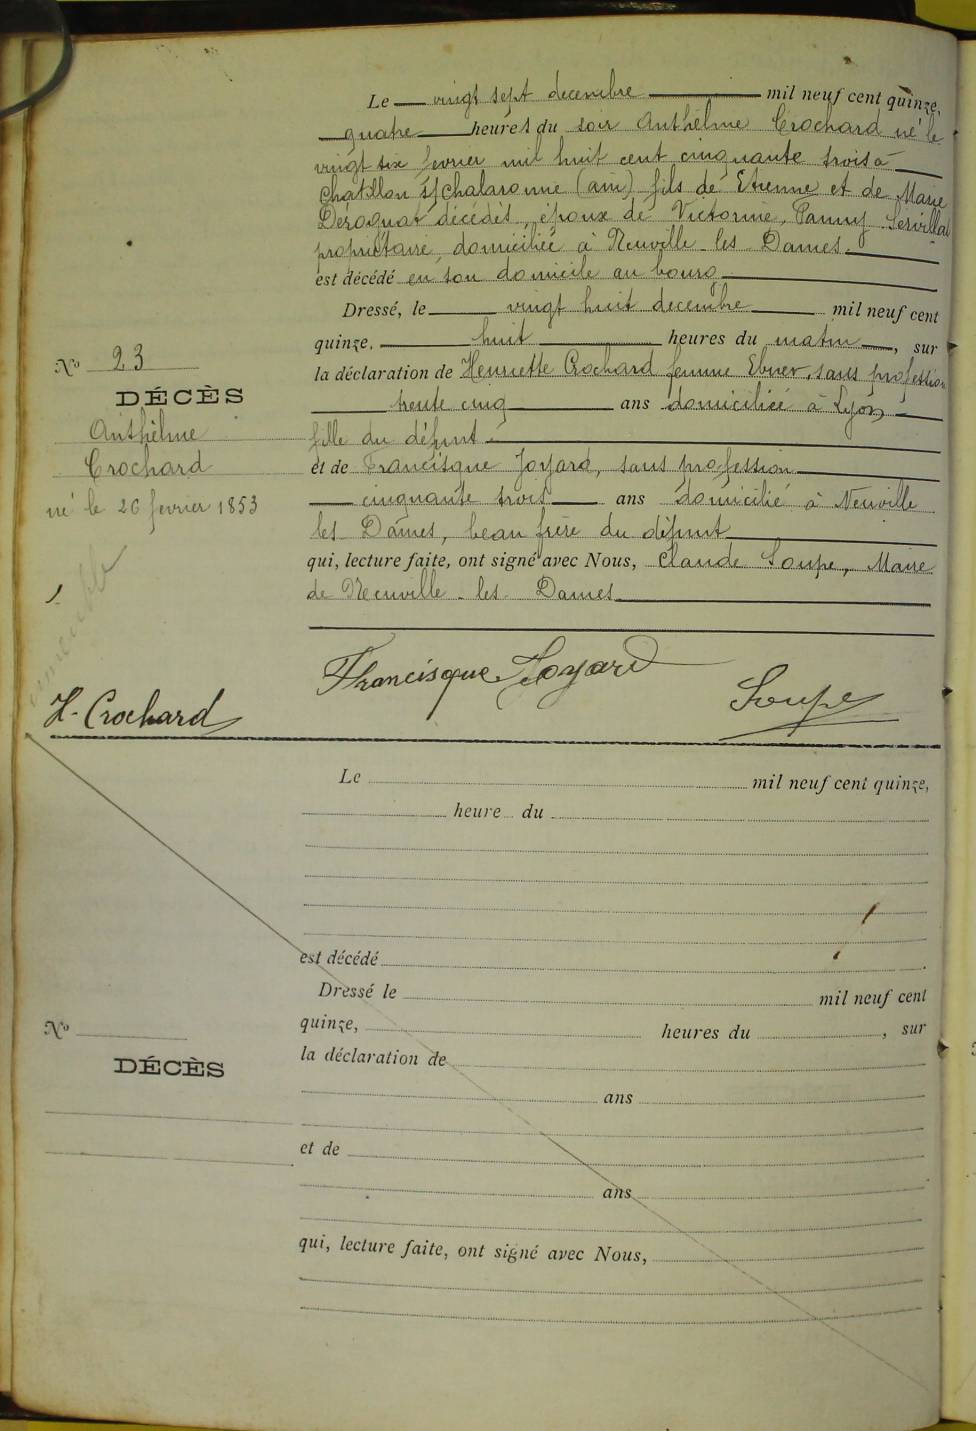 Le vingt sept decembre mil neuf cent quinze,
quatre heures du soir Anthelme Crochard né le
vingt six fevrier mil huit cent cinquante trois à
chatillon s/ chalaronne (ain) fils de Etienne et de Marie
décédés, époux de Victorine, Fanny
propriétaire, domicilié à Neuville les Dames
est décédé en son domicile au bourg
Dressé, le vingt huit decembre mil neuf cent
quinze, huit heures du matin, sur
la déclaration de Henriette Crochard femme Ebner, sans profession
trente cinq ans domiciliée à Lyon
fille du défunt
et de Francisque Joyard, sans profession
cinquante trois ans domicilié à Neuville
les Dames, beau frère du défunt
qui, lecture faite, ont signé avec Nous, Claude Soupe, Maire
de Neuville-les-Dames
No 23
DÉCÈS
Anthelme
Crochard
né le 26 fevrier 1853
H. Crochard
Francisque Joyard
Soupe
Le mil neuf cent quinze,
heure du
est décédé
Dressé le mil neuf cent
quinze, heures du , sur
la déclaration de
ans
et de
ans
qui, lecture faite, ont signé avec Nous,
No
DÉCÈS